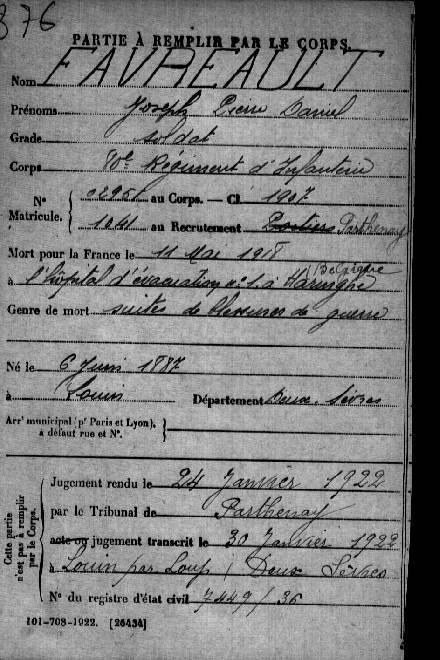 376
PARTIE À REMPLIR PAR LE CORPS.
Nom FAVREAULT
Prénoms Joseph Pierre Daniel
Grade soldat
Corps 80e Régiment d'Infanterie
N° Matricule. { 02951 au Corps. — Cl 1907
1041 au Recrutement Poitiers Parthenay
Mort pour la France le 11 Mai 1918
à l'hôpital d'évacuation n° 1. à Haringhe (Belgique
Genre de mort suites de blessures de guerre
Né le 6 Juin 1887
à Louin Département Deux-Sèvres
Arrt municipal (pr Paris et Lyon), à défaut rue et N°. {
Cette partie n'est pas à remplir par le Corps.
Jugement rendu le 24 Janvier 1922
par le Tribunal de Parthenay
acte ou jugement transcrit le 30 Janvier 1922
à Louin par Loup (Deux Sèvres
N° du registre d'état civil 7449/36
101-708-1922. [26434]